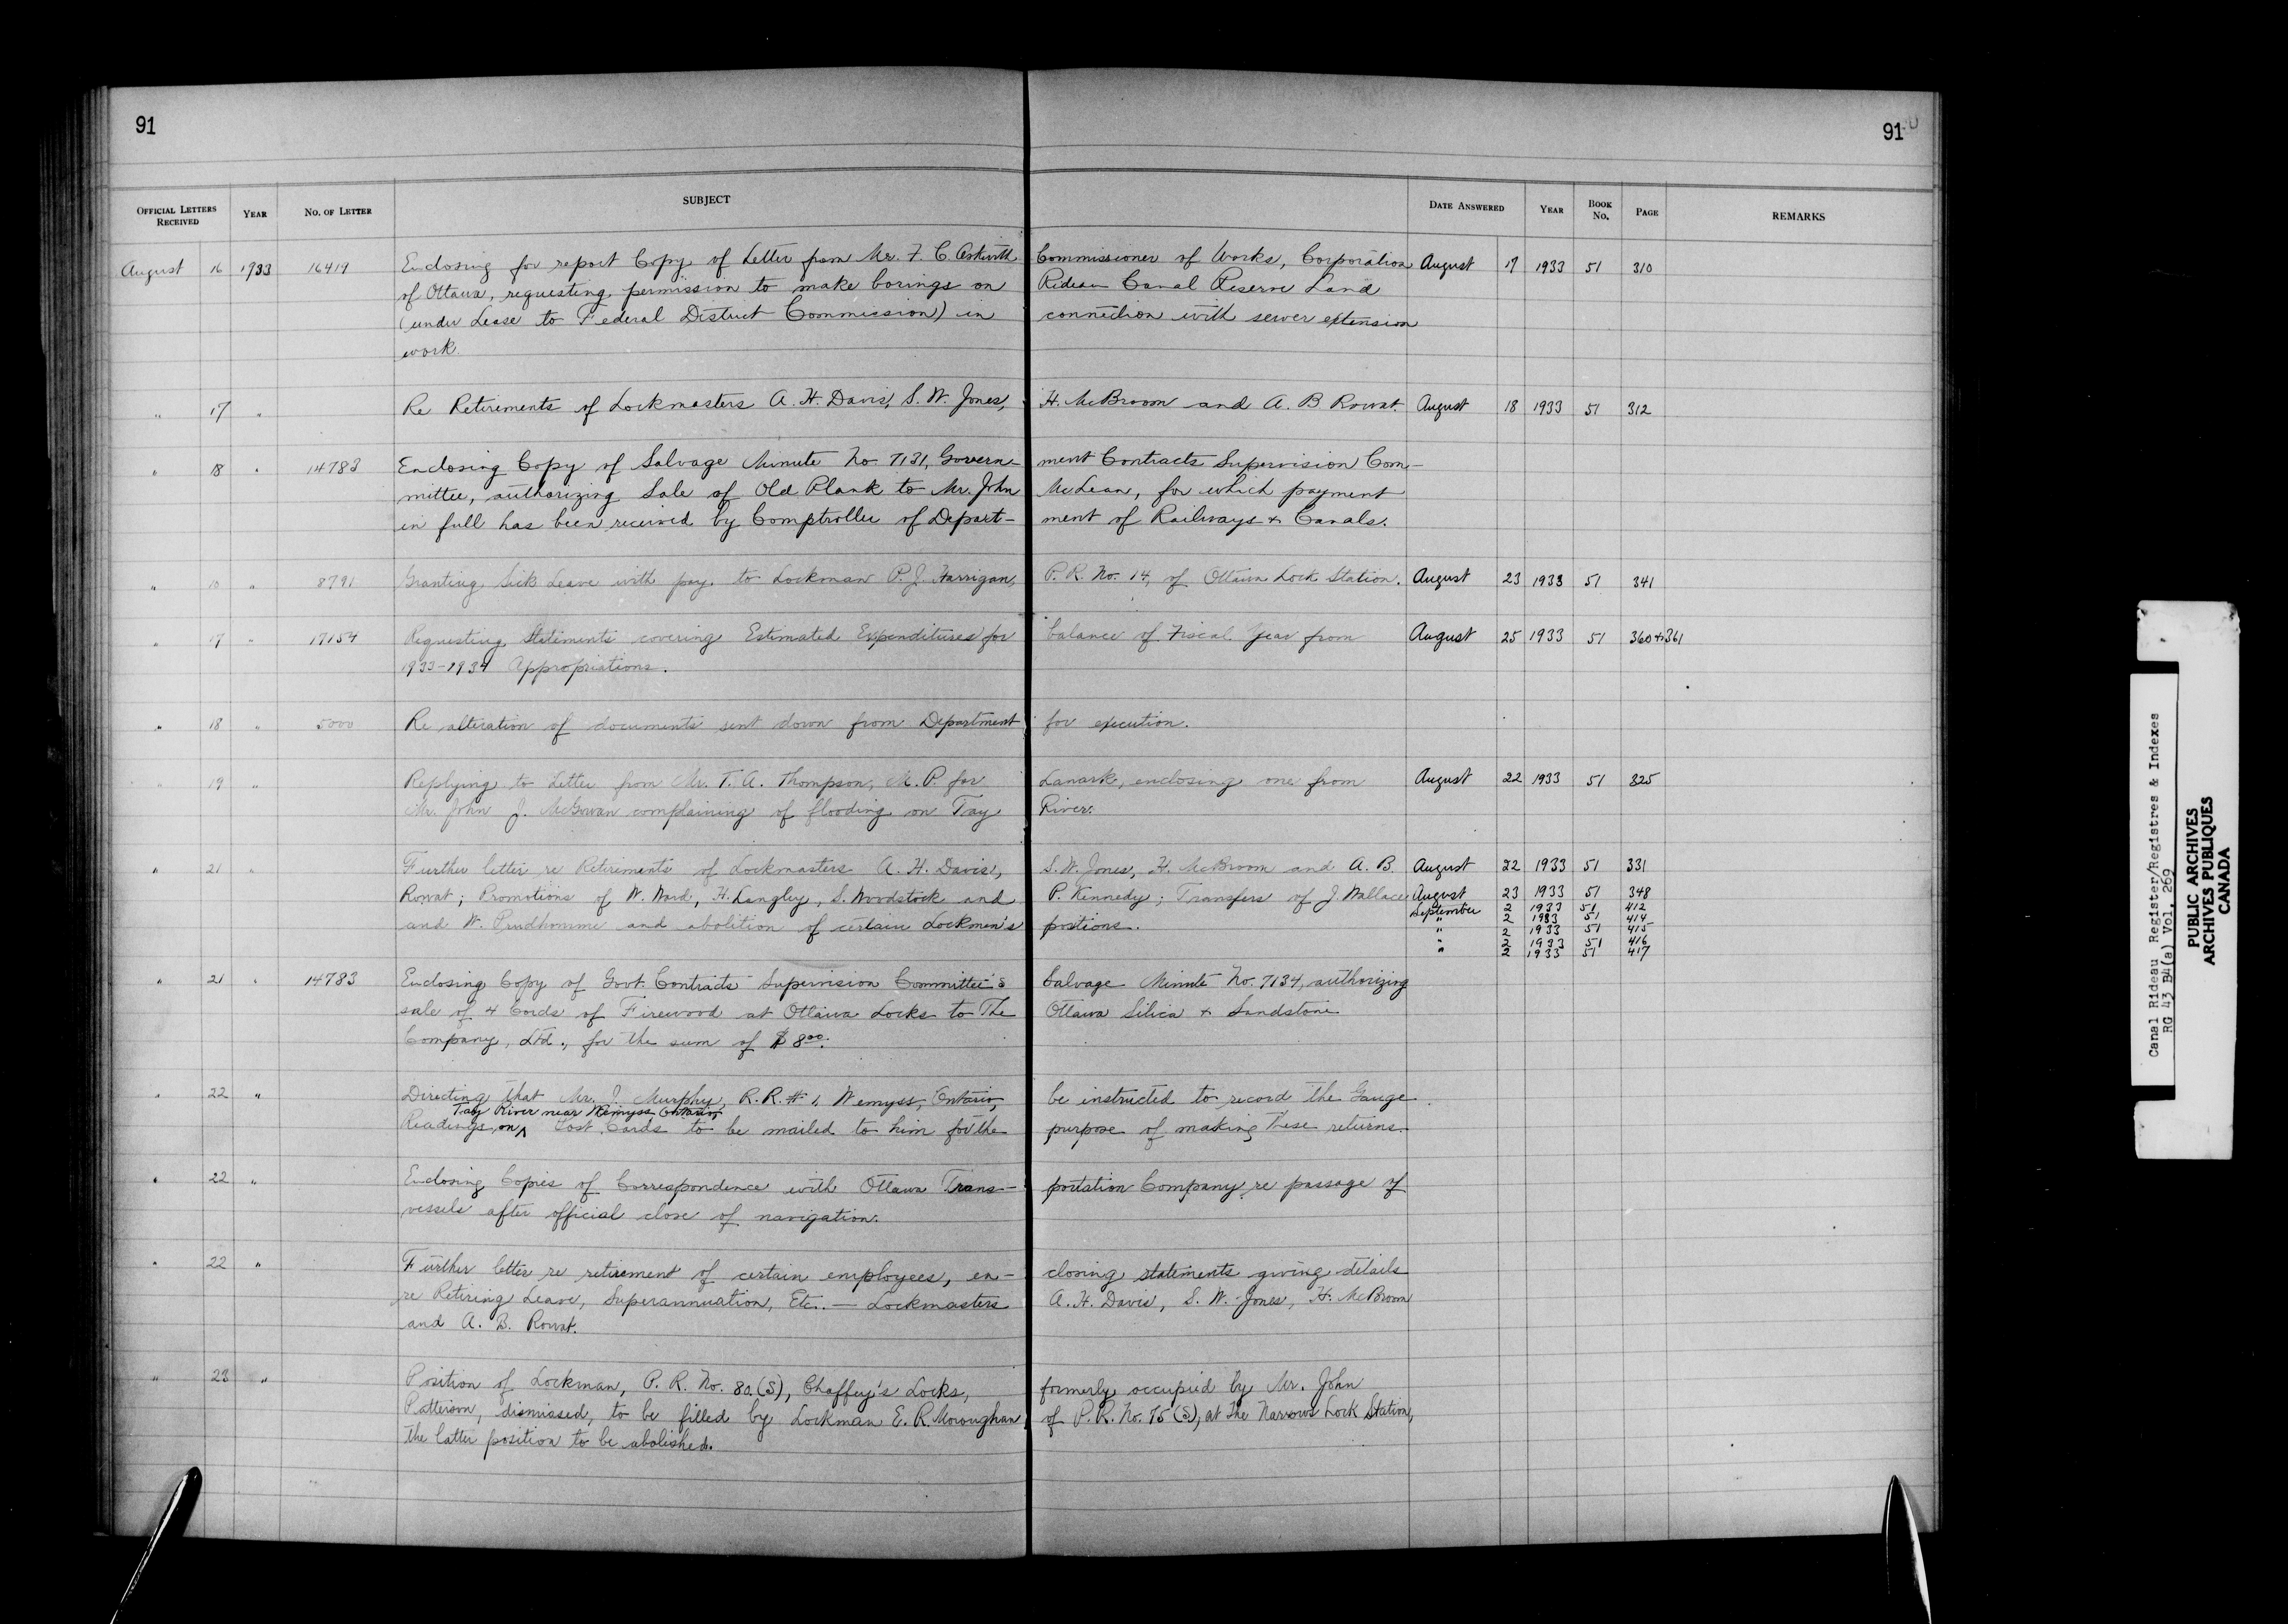 91
91
OFFICIAL LETTERS RECEIVED YEAR NO. OF LETTER SUBJECT DATE ANSWERED YEAR BOOK NO. PAGE REMARKS
August 16 1933 16419 Enclosing for report Copy of Letter from Mr. F. C. Askwith Commissioner of Works, Corporation August 17 1933 51 310
of Ottawa, requesting permission to make borings on Rideau Canal Reserve Land
(under Lease to Federal District Commission) in connection with sewer extension
work
" 17 " Re Retirements of Lockmasters A. H. Davis, S. W. Jones, H. McBroom and A. B Rowat. August 18 1933 51 312
" 18 " 14783 Enclosing Copy of Salvage Minute No 7131, Govern- ment Contracts Supervision Com-
mittee, authorizing Sale of Old Plank to Mr. John McLean, for which payment
in full has been received by Comptroller of Depart- ment of Railways & Canals.
" 10 " 8791 Granting Sick Leave with pay to Lockman P. J. Harrigan, P. R. No. 14, of Ottawa Lock Station. August 23 1933 51 341
" 17 " 17154 Requesting Statements covering Estimated Expenditures for balance of Fiscal Year from August 25 1933 51 360 & 361
1933-1934 Appropriations.
" 18 " 5000 Re alteration of documents sent down from Department for execution.
" 19 " Replying to Letter from Mr. T. A. Thompson, M. P. for Lanark, enclosing one from August 22 1933 51 325
Mr. John J. McGowan complaining of flooding on Tay River.
" 21 " Further letter re Retirements of Lockmasters A. H. Davis, S. W. Jones, H. McBroom and A. B. August 22 1933 51 331
Rowat; Promotions of W. Ward, H. Langley, S. Woodstock and P. Kennedy; Transfers of J. Wallace August 23 1933 51 348
September 2 1933 51 412
and W. Prudhomme and abolition of certain Lockmen's positions. " 2 1933 51 414
" 2 1933 51 415
" 2 1933 51 416
" 2 1933 51 417
" 21 " 14783 Enclosing Copy of Govt. Contracts Supervision Committee's Salvage Minute No. 7134, authorizing
sale of 4 Cords of Firewood at Ottawa Locks to The Ottawa Silica & Sandstone
Company, Ltd., for the sum of $8.00.
" 22 " Directing that Mr. J. Murphy, R. R. # 1, Wemyss, Ontario, be instructed to record the Gauge
Tay River near Wemyss Ontario,
Readings on Post Cards to be mailed to him for the purpose of making these returns.
" 22 " Enclosing Copies of Correspondence with Ottawa Trans- portation Company re passage of
vessels after official close of navigation.
" 22 " Further letter re retirement of certain employees, en- closing statements giving details
re Retiring Leave, Superannuation, Etc. — Lockmasters A. H. Davis, S. W. Jones, H. McBroom
and A. B. Rowat.
" 23 " Position of Lockman, P. R. No. 80.(S), Chaffey's Locks, formerly occupied by Mr. John
Patterson, dismissed, to be filled by Lockman E. R. Moroughan, of P. R. No. 75 (S), at The Narrows Lock Station,
the latter position to be abolished.
Canal Rideau Register/Registres & Indexes
RG 43 B4(a) Vol. 269
PUBLIC ARCHIVES
ARCHIVES PUBLIQUES
CANADA